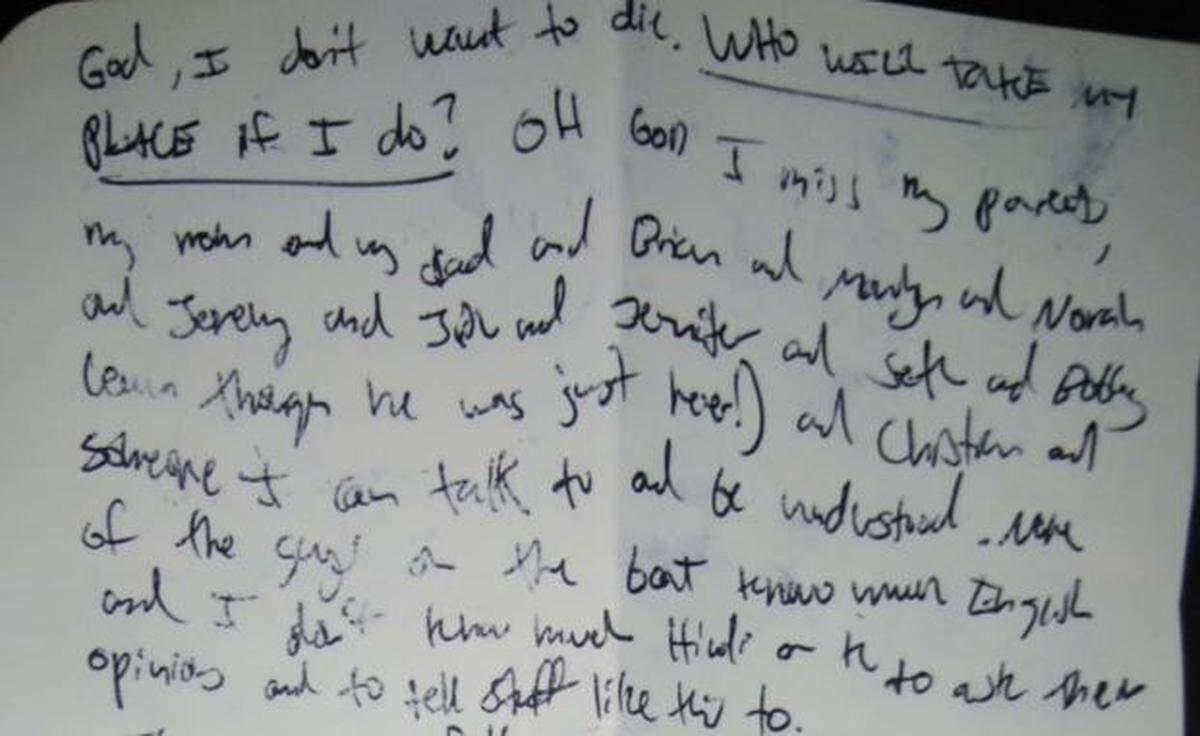 God, I don't want to die. WHO WILL TAKE MY
PLACE if I do? OH GOD I miss my parents,
my mom and my dad and Brian and Marilyn and Norah
and Jeremy and JDR and Jennifer and Seth and Bobby
(even though he was just here!) and Christian and
someone I can talk to and be understood. None
of the guys on the boat know much English
and I don't know much Hindi or to ask them
opinions and to tell stuff like this to.